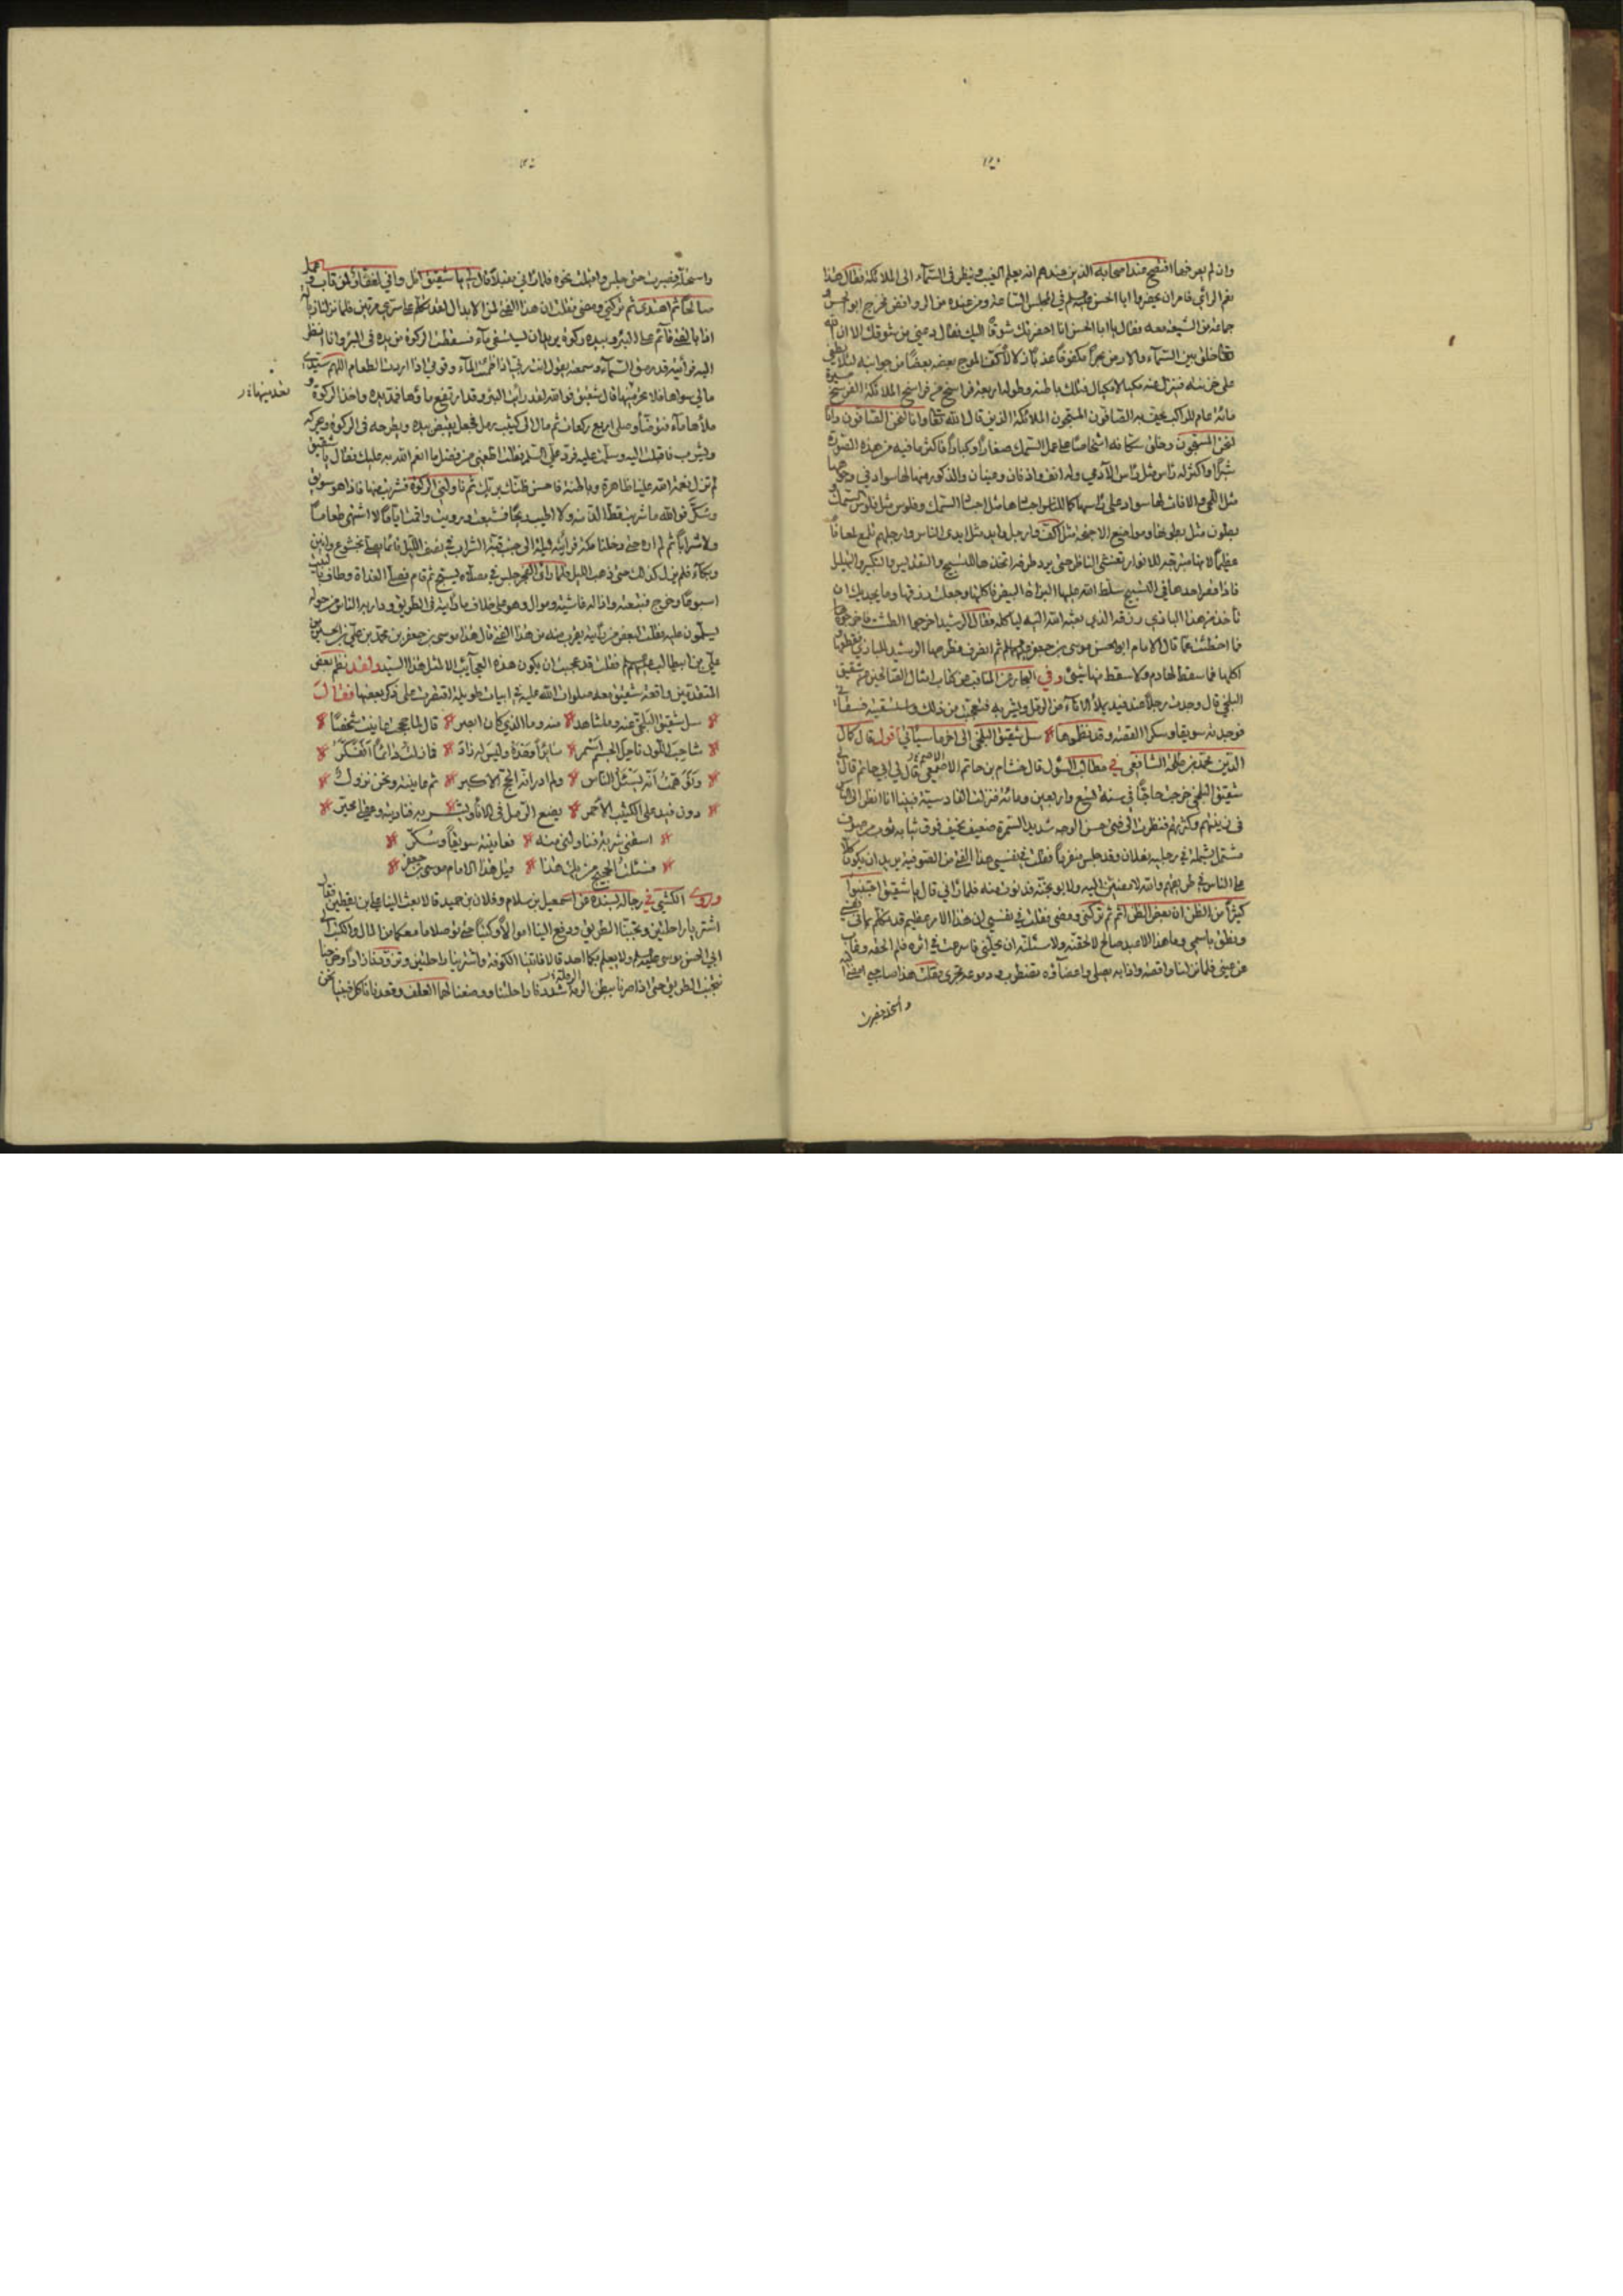 وان لم يعرفها افتضح عند اصحابه الذين عندهم انه يعلم الغيب وينظر في السمآء الى الملائكة فقال هذا
نعم الرأي فامر ان يحضروا ابا الحسن في المجلس الثاني ومن عنده من الروافض فخرج ابو الحسن و
جماعة من الشيعة معه فقال يا ابا الحسن انا احضرتك شوقاً اليك فقال دعني من شوقك الا ان الله
تعالى خلق بين السمآء والارض بحراً مكفوفاً عذباً زلالاً كفّ الموج بعضه بعضاً من جوانبه لئلا يطغى
على خزنته فينزل منه مكيال فيهلك ما تحته وطوله اربعة فراسخ من فراسخ الملائكة الفرسخ مسيرة
مائة عام للراكب يحف به الصافون المسبحون الملائكة الذين قال الله تعالى وانا لنحن الصافون وانا
لنحن المسبحون وخلق سكانه اشخاصاً على عمل السمك صغاراً وكباراً فاكثر ما فيه من هذه الصورة
شبراً واكثر له رأس مثل رأس الآدمي وله انف واذنان وعينان والذكور منها لها سواد في وجهها
مثل اللحى والاناث لها سواد على رأسها كما للناس اجسادها مثل اجساد السمك وفلوس مثل فلوس السمك
بطون مثل بطونها ومواضع الاجنحة مثل اكف وارجل وايد مثل ايدي الناس وارجلهم تلمع لمعاناً
عظيماً لانها متبرجة للانوار تغشى الناظر حتى يرد طرفه اتخذ هذا للتسبيح والتقديس والتكبير والتهليل
فاذا قصر احدها في التسبيح سلط الله عليها البزاة البيض فاكلتها وجعلت رزقها وما يحل لك ان
تأخذ من هذا البازي رزقه الذي بعثه الله اليه لياكله فقال الرشيد اخرجوا الطشت فاخرجوها
فما اخطأت مما قال الامام ابو الحسن موسى بن جعفر ثم انصرف فطرحها الرشيد للبازي فقطعها
اكلها فما سقط لها دم ولا سقط منها شيئ وفي البحار عن المناقب عن كتاب امثال الصالحين عن شقيق
البلخي قال وجدت رجلاً عند فيد يملأ الانآء من الرمل ويشربه فتعجبت من ذلك واستسقيته فسقاني
فوجدته سويقاً وسكراً القصة وقد نظموها سل شقيق البلخي الى اخر ما سيأتي اقول قال كمال
الدين محمد بن طلحة الشافعي في مطالب السؤل قال خشنام بن حاتم الاصم قال لي ابي حاتم قال لي
شقيق البلخي خرجت حاجاً في سنة تسع واربعين ومائة فنزلت القادسية فبينا انا انظر الى الناس
في زينتهم وكثرتهم فنظرت الى فتى حسن الوجه شديد السمرة ضعيف نحيف فوق ثيابه ثوب من صوف
مشتمل بشملة في رجليه نعلان وقد جلس منفرداً فقلت في نفسي هذا الفتى من الصوفية يريد ان يكون كلاً
على الناس في طريقهم والله لامضين اليه ولاوبخنه فدنوت منه فلما رآني قال يا شقيق اجتنبوا
كثيراً من الظن ان بعض الظن اثم ثم تركني ومضى فقلت في نفسي ان هذا الامر عظيم قد تكلم بما في نفسي
ونطق باسمي وما هذا الا عبد صالح لالحقنه ولاسئلنه ان يحللني فاسرعت في اثره فلم الحقه وغاب
عن عيني فلما نزلنا واقصة واذا به يصلي واعضآؤه تضطرب ودموعه تجري فقلت هذا صاحبي امضي اليه
واستحله فصبرت
واستحله فصبرت حتى جلس واقبلت نحوه فلما رآني مقبلاً قال لي يا شقيق اتل واني لغفار لمن تاب وعمل
صالحاً ثم اهتدى ثم تركني ومضى فقلت ان هذا الفتى لمن الابدال لقد تكلم على سري مرتين فلما نزلنا زبالة
اذا بالفتى قآئم على البئر وبيده ركوة يريد ان يستقي مآء فسقطت الركوة من يده في البئر وانا انظر
اليه فرأيته قد رمق السمآء وسمعته يقول انت ربي اذا ظمئت الى المآء وقوتي اذا اردت الطعام اللهم سيدي
مالي سواها فلا تعدمنيها قال شقيق فوالله لقد رأيت البئر وقد ارتفع ماؤها فمد يده واخذ الركوة و
ملأها مآء فتوضأ وصلى اربع ركعات ثم مال الى كثيب رمل فجعل يقبض بيده ويطرحه في الركوة ويحركه
ويشرب فاقبلت اليه وسلمت عليه فرد علي السلم فقلت اطعمني من فضل ما انعم الله به عليك فقال يا شقيق
لم تزل نعمة الله علينا ظاهرة وباطنة فاحسن ظنك بربك ثم ناولني الركوة فشربت منها فاذا هو سويق
وسكر فوالله ما شربت قط الذ منه ولا اطيب ريحاً فشبعت ورويت واقمت اياماً لا اشتهي طعاماً
ولا شراباً ثم لم اره حتى دخلنا مكة فرأيته ليلة الى جنب قبة الشراب في نصف الليل قائماً يصلي بخشوع وانين
وبكآء فلم يزل كذلك حتى ذهب الليل فلما رأى الفجر جلس في مصلاه يسبح ثم قام فصلى الغداة وطاف بالبيت
اسبوعاً وخرج فتبعته واذا له غاشية وموال وهو على خلاف ما رأيته في الطريق ودار به الناس من حوله
يسلمون عليه فقلت لبعض من رأيته يقرب منه من هذا الفتى قال هذا موسى بن جعفر بن محمد بن علي بن الحسين بن
علي بن ابي طالب فقلت قد عجبت ان يكون هذه العجآيب الا لمثل هذا السيد ولقد نظم بعض
المتقدمين واقعة شقيق معه صلوات الله عليه في ابيات طويلة اقتصرت على ذكر بعضها فقال
سل شقيق البلخي عنه وما شاهد منه وما الذي كان ابصر قال لما حججت عاينت شخصاً
شاحب اللون ناحل الجسم اسمر سائراً وحده وليس له زاد فما زلت دائماً اتفكر
وتوهمت انه يسئل الناس ولم ادر انه الحج الاكبر ثم عاينته ونحن نزول
دون فيد على الكثيب الاحمر يضع الرمل في الانآء ويشربه فناديته وعقلي محير
اسقني شربة فناولني منه فعاينته سويقاً وسكر
فسئلت الحجيج من يك هذا قيل هذا الامام موسى بن جعفر
وروى الكشي في رجاله بسنده عن اسمعيل بن سلام وفلان بن حميد قالا بعث الينا علي بن يقطين فقال
اشتريا راحلتين وتجنبا الطريق ودفع الينا اموالاً وكتباً حتى توصلا ما معكما من المال والكتب الى
ابي الحسن موسى ولا يعلم بكما احد قالا فاتينا الكوفة واشترينا راحلتين وتزودنا زاداً وخرجنا
نتجنب الطريق حتى اذا صرنا ببطن الرمة شددنا راحلتنا ووضعنا لها العلف وقعدنا نأكل فبينا نحن
تعدمنيها